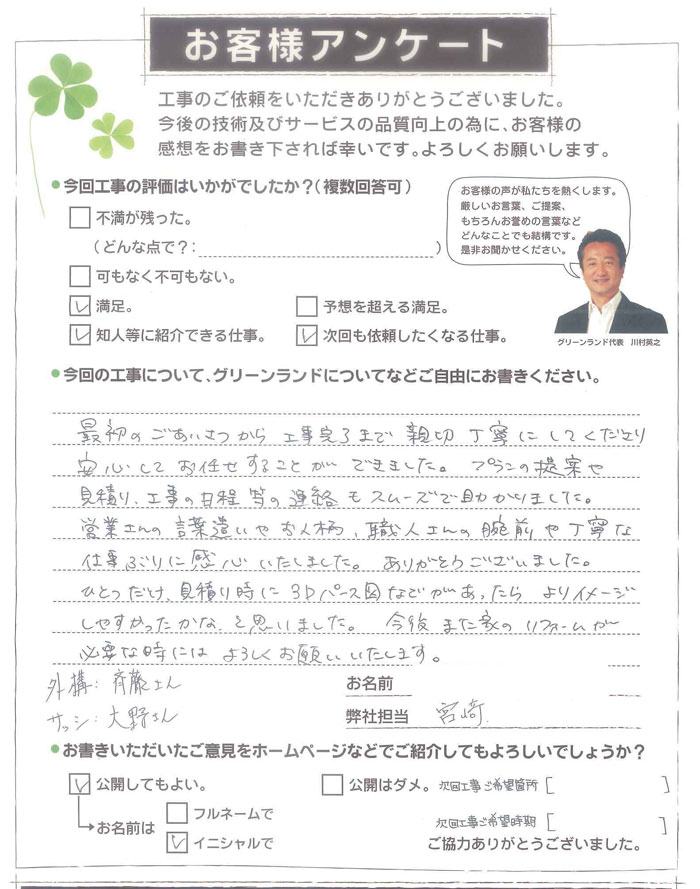 お客様アンケート
工事のご依頼をいただきありがとうございました。
今後の技術及びサービスの品質向上の為に、お客様の
感想をお書き下されば幸いです。よろしくお願いします。
●今回工事の評価はいかがでしたか？（複数回答可）
不満が残った。
（どんな点で？：　）
可もなく不可もない。
満足。
予想を超える満足。
知人等に紹介できる仕事。
次回も依頼したくなる仕事。
お客様の声が私たちを熱くします。
厳しいお言葉、ご提案、
もちろんお誉めの言葉など
どんなことでも結構です。
是非お聞かせください。
グリーンランド代表　川村英之
●今回の工事について、グリーンランドについてなどご自由にお書きください。
最初のごあいさつから 工事完了まで 親切 丁寧に してくださり
安心して お任せすることが できました。 プランの提案や
見積り、工事の日程 等の連絡もスムーズで助かりました。
営業さんの 言葉遣いや お人柄、職人さんの 腕前や丁寧な
仕事ぶりに感心いたしました。 ありがとうございました。
ひとつだけ、見積り時に 3Dパース図などがあったら よりイメージ
しやすかったかな、と思いました。 今後 また家の リフォームが
必要な時には よろしくお願いいたします。
外構：斉藤さん
サッシ：大野さん
お名前
弊社担当　宮﨑
●お書きいただいたご意見をホームページなどでご紹介してもよろしいでしょうか？
公開してもよい。
公開はダメ。
次回工事ご希望箇所［　］
お名前は
フルネームで
イニシャルで
次回工事ご希望時期［　］
ご協力ありがとうございました。